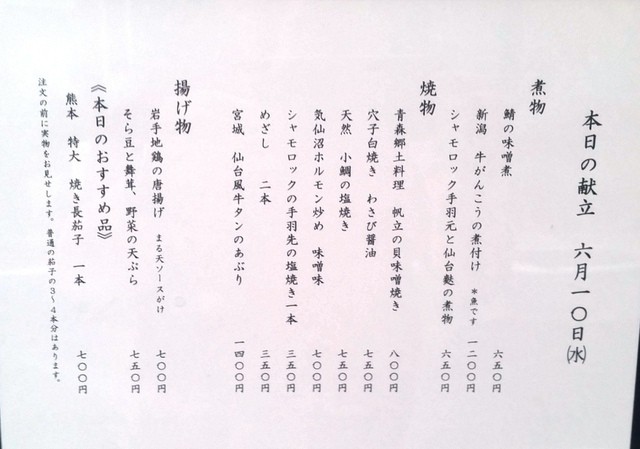 本日の献立　六月一〇日㈬
煮物
鯖の味噌煮　六五〇円
新潟　牛がんこうの煮付け　＊魚です　一二〇〇円
シャモロック手羽元と仙台麩の煮物　六五〇円
焼物
青森郷土料理　帆立の貝味噌焼き　八〇〇円
穴子白焼き　わさび醤油　七五〇円
天然　小鯛の塩焼き　七五〇円
気仙沼ホルモン炒め　味噌味　七〇〇円
シャモロックの手羽先の塩焼き一本　三五〇円
めざし　二本　三五〇円
宮城　仙台風牛タンのあぶり　一四〇〇円
揚げ物
岩手地鶏の唐揚げ　まる天ソースがけ　七〇〇円
そら豆と舞茸、野菜の天ぷら　七五〇円
《本日のおすすめ品》
熊本　特大　焼き長茄子　一本　七〇〇円
注文の前に実物をお見せします。普通の茄子の３～４本分はあります。